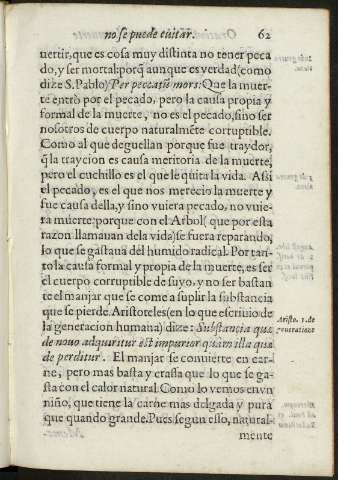 no se puede euitar. 62
uertir, que es cosa muy distinta no tener peca
do, y ser mortal: porq̃ aunque es verdad (como
dize S. Pablo) Per peccatũ mors: Que la muer-
te entrò por el pecado, pero la causa propia y
formal de la muerte, no es el pecado, sino ser
nosotros de cuerpo naturalmẽte corruptible.
Como al que deguellan porque fue traydor,
q̃ la traycion es causa meritoria de la muerte,
pero el cuchillo es el que le quita la vida. Assi
el pecado, es el que nos merecio la muerte y
fue causa della, y sino vuiera pecado, no vuie-
ra muerte: porque con el Arbol (que por esta
razon llamauan dela vida) se fuera reparando,
lo que se gastaua del humido radical. Por tan-
to la causa formal y propia de la muerte, es ser
el cuerpo corruptible de suyo, y no ser bastan
te el manjar que se come a suplir la substancia
que se pierde. Aristoteles (en lo que escriuio de
la generacion humana) dize: Substancia quæ
de nouo adquiritur est impurior quàm illa quæ
de perditur. El manjar se conuierte en car-
ne, pero mas basta y crassa que lo que se ga-
sta con el calor natural. Como lo vemos en vn
niño, que tiene la carne mas delgada y pura
que quando grande. Pues segun esso, natural-
mente
Aristo. 1. de
generatione